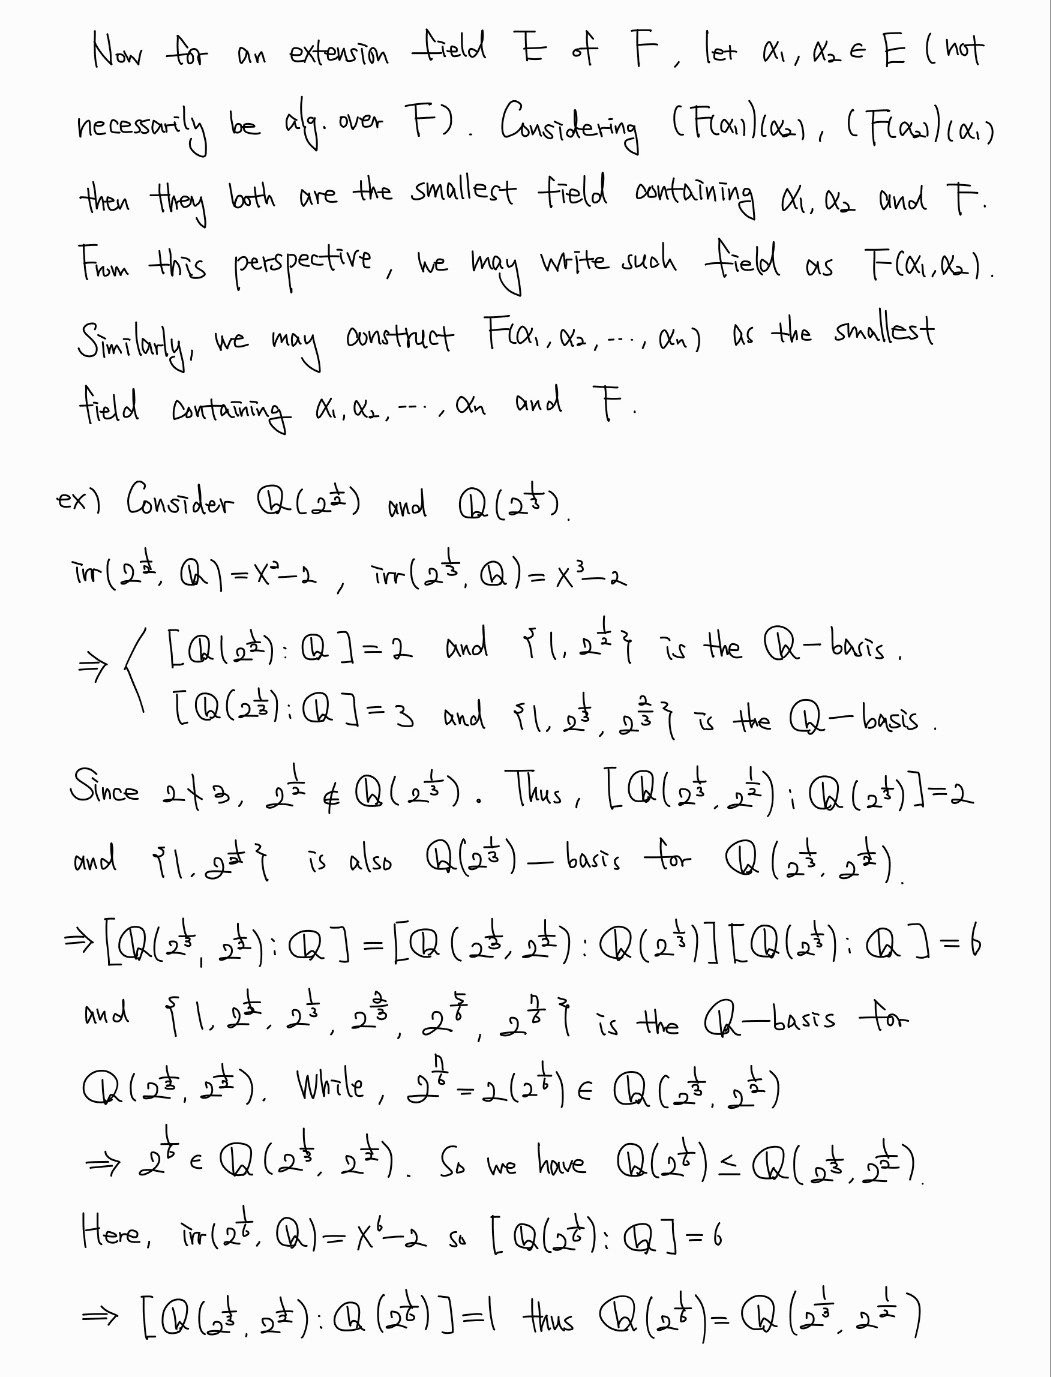 Now for an extension field E of F, let α₁, α₂ ∈ E (not
necessarily be alg. over F). Considering (F(α₁))(α₂), (F(α₂))(α₁)
then they both are the smallest field containing α₁, α₂ and F.
From this perspective, we may write such field as F(α₁, α₂).
Similarly, we may construct F(α₁, α₂, ⋯, αₙ) as the smallest
field containing α₁, α₂, ⋯, αₙ and F.
ex) Consider ℚ(2^{1/2}) and ℚ(2^{1/3}).
irr(2^{1/2}, ℚ) = x²−2, irr(2^{1/3}, ℚ) = x³−2
⇒ [ℚ(2^{1/2}) : ℚ] = 2 and {1, 2^{1/2}} is the ℚ−basis.
[ℚ(2^{1/3}) : ℚ] = 3 and {1, 2^{1/3}, 2^{2/3}} is the ℚ−basis.
Since 2∤3, 2^{1/2} ∉ ℚ(2^{1/3}). Thus, [ℚ(2^{1/3}, 2^{1/2}) : ℚ(2^{1/3})] = 2
and {1, 2^{1/2}} is also ℚ(2^{1/3})−basis for ℚ(2^{1/3}, 2^{1/2}).
⇒ [ℚ(2^{1/3}, 2^{1/2}) : ℚ] = [ℚ(2^{1/3}, 2^{1/2}) : ℚ(2^{1/3})][ℚ(2^{1/3}) : ℚ] = 6
and {1, 2^{1/2}, 2^{1/3}, 2^{2/3}, 2^{5/6}, 2^{7/6}} is the ℚ−basis for
ℚ(2^{1/3}, 2^{1/2}). While, 2^{7/6} = 2(2^{1/6}) ∈ ℚ(2^{1/3}, 2^{1/2})
⇒ 2^{1/6} ∈ ℚ(2^{1/3}, 2^{1/2}). So we have ℚ(2^{1/6}) ≤ ℚ(2^{1/3}, 2^{1/2}).
Here, irr(2^{1/6}, ℚ) = x⁶−2 so [ℚ(2^{1/6}) : ℚ] = 6
⇒ [ℚ(2^{1/3}, 2^{1/2}) : ℚ(2^{1/6})] = 1 thus ℚ(2^{1/6}) = ℚ(2^{1/3}, 2^{1/2})